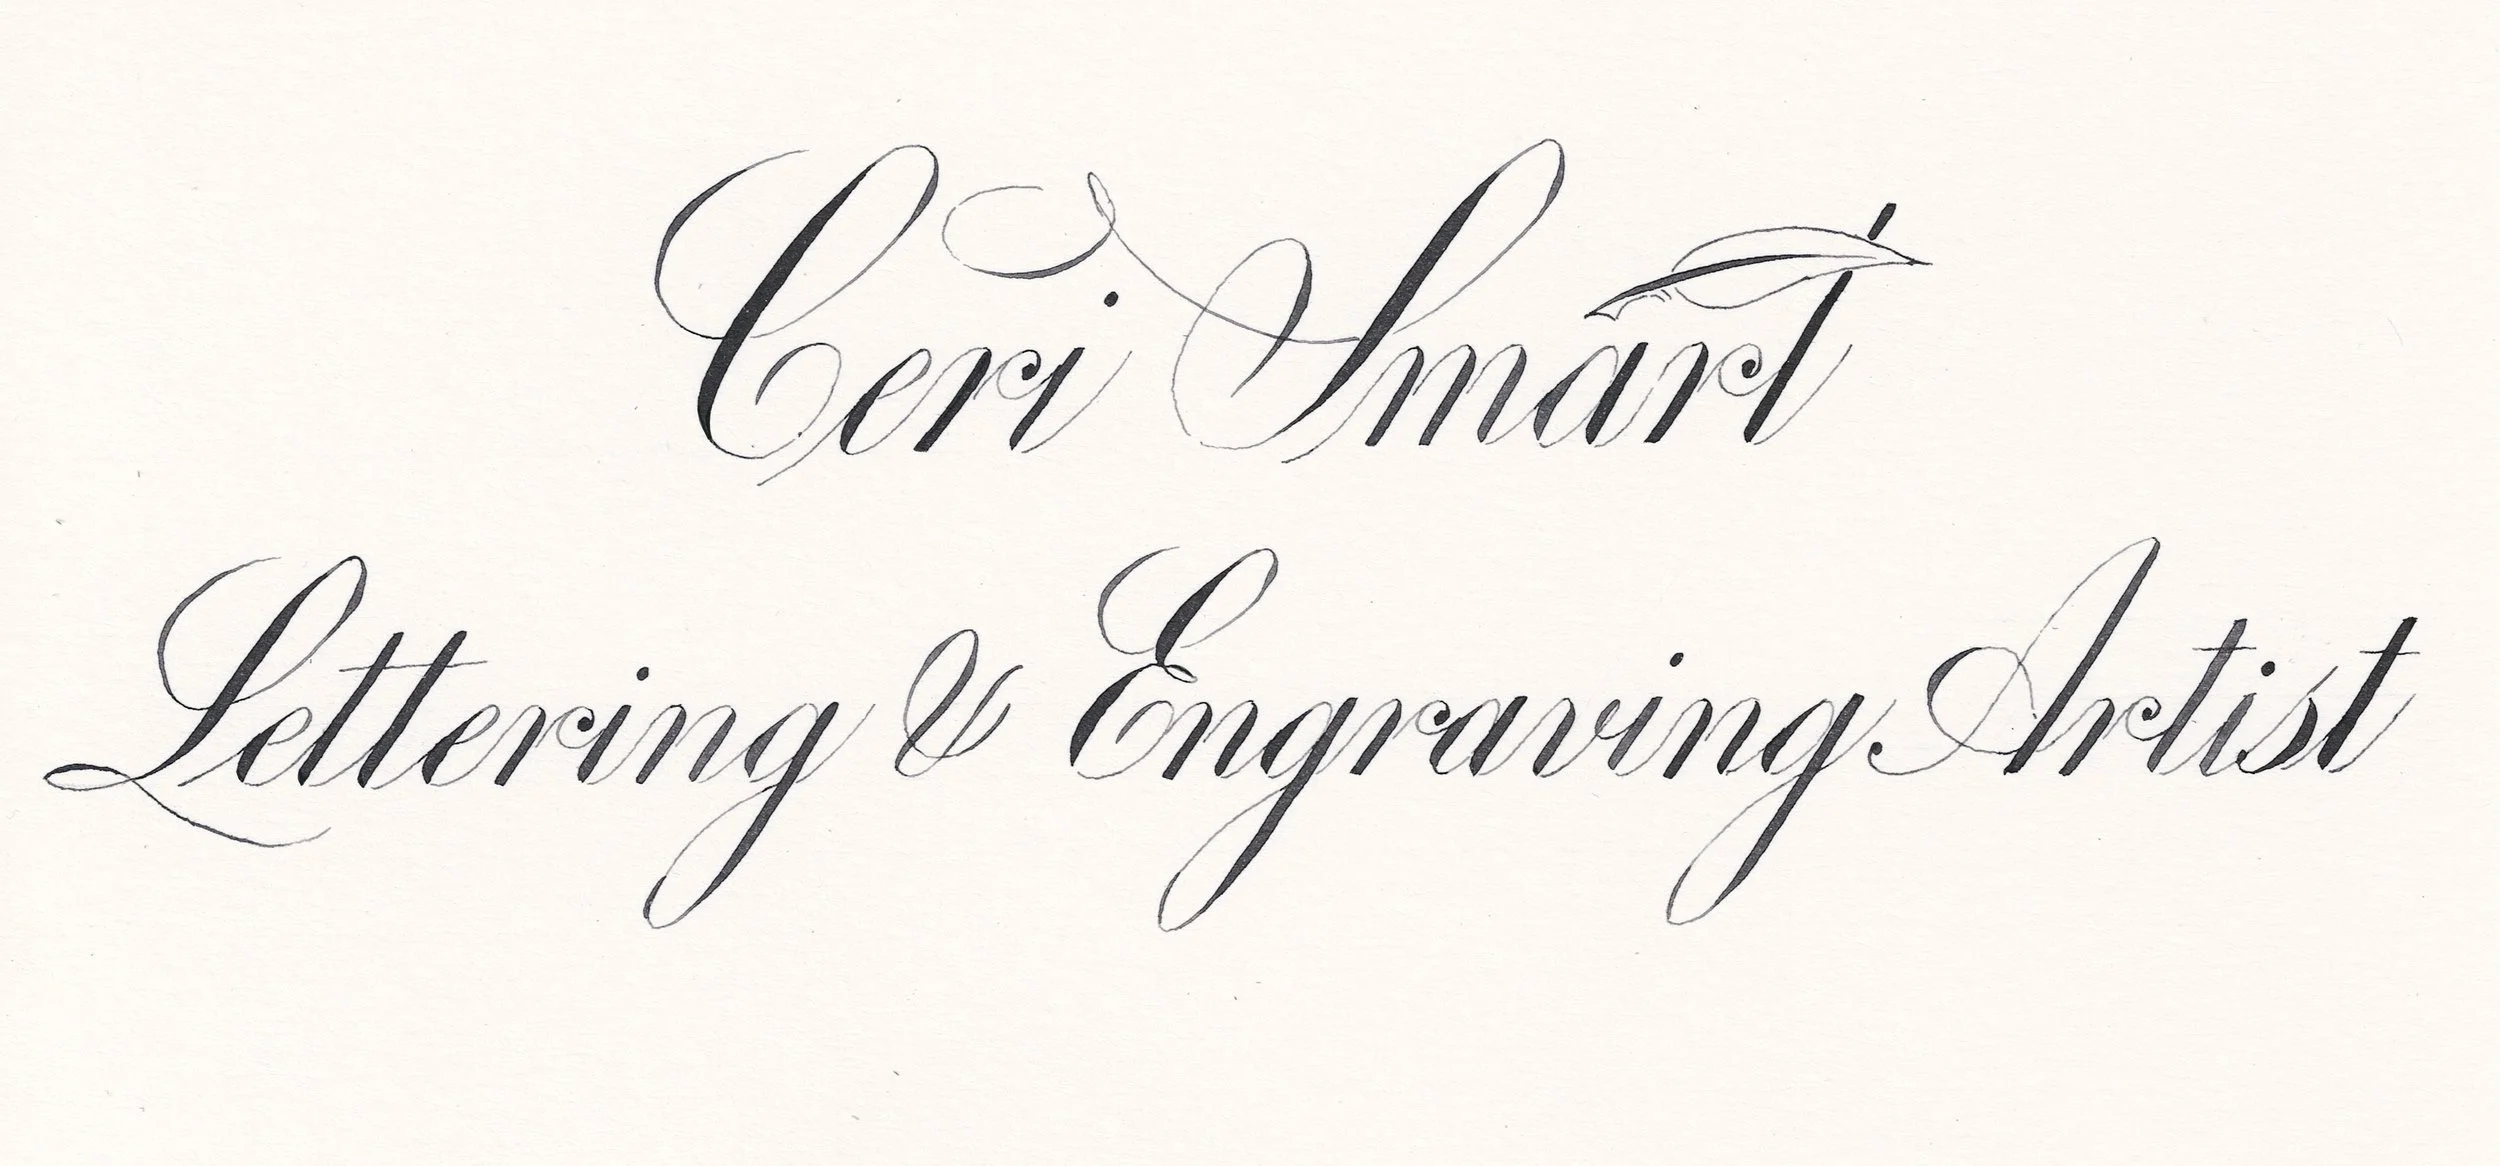 Ceri Smart
Lettering & Engraving Artist